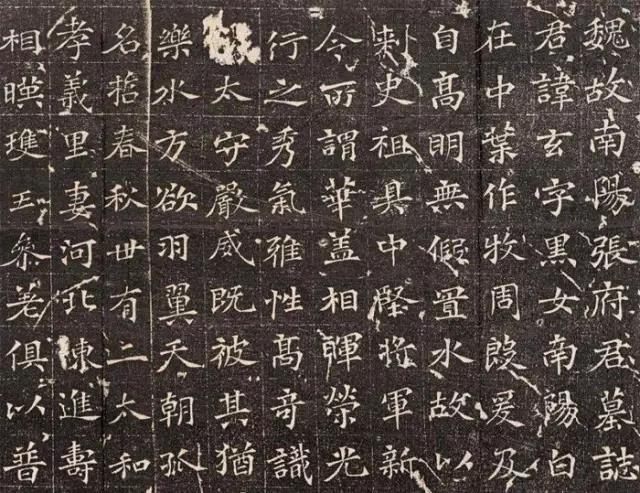 魏故南陽張府君墓誌
君諱玄字黑女南陽白
在中葉作牧周殷爰及
自高明無假置水故以
刾史祖具中堅將軍新
令所謂華盖相暉榮光
行之秀氣雅性高奇識
太守嚴威既被其猶
樂水方欲羽翼天朝孤
名春秋卅有二太和
孝義里妻河北陳進壽
相暎瓊玉參差俱以普